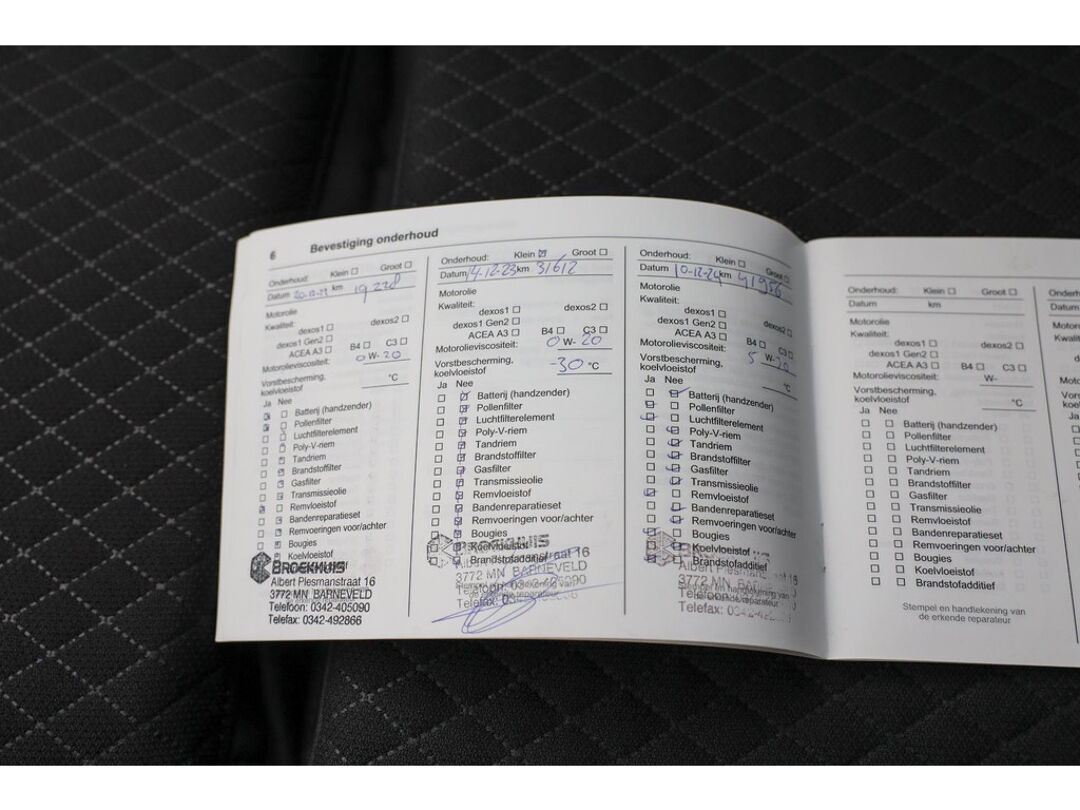 6 Bevestiging onderhoud
Onderhoud: Klein Groot
Datum km 19 228
Motorolie
Kwaliteit: dexos1 dexos2
dexos1 Gen2
ACEA A3 B4 C3
Motorolieviscositeit: 0 W- 20
Vorstbescherming,
koelvloeistof °C
Ja Nee
Batterij (handzender)
Pollenfilter
Luchtfilterelement
Poly-V-riem
Tandriem
Brandstoffilter
Gasfilter
Transmissieolie
Remvloeistof
Bandenreparatieset
Remvoeringen voor/achter
Bougies
Koelvloeistof
BROEKHUIS
Albert Plesmanstraat 16
3772 MN BARNEVELD
Telefoon: 0342-405090
Telefax: 0342-492866
Onderhoud: Klein Groot
Datum 14-12-23 km 31612
Motorolie
Kwaliteit:
dexos1 dexos2
dexos1 Gen2
ACEA A3 B4 C3
Motorolieviscositeit: 0 W- 20
Vorstbescherming,
koelvloeistof -30 °C
Ja Nee
Batterij (handzender)
Pollenfilter
Luchtfilterelement
Poly-V-riem
Tandriem
Brandstoffilter
Gasfilter
Transmissieolie
Remvloeistof
Bandenreparatieset
Remvoeringen voor/achter
Bougies
Koelvloeistof
Brandstofadditief
BROEKHUIS
3772 MN BARNEVELD
Onderhoud: Klein Groot
Datum 10-12-24 km 41956
Motorolie
Kwaliteit:
dexos1 dexos2
dexos1 Gen2
ACEA A3 B4 C3
Motorolieviscositeit: 5 W-30
Vorstbescherming,
koelvloeistof °C
Ja Nee
Batterij (handzender)
Pollenfilter
Luchtfilterelement
Poly-V-riem
Tandriem
Brandstoffilter
Gasfilter
Transmissieolie
Remvloeistof
Bandenreparatieset
Remvoeringen voor/achter
Bougies
Koelvloeistof
Brandstofadditief
Onderhoud: Klein Groot
Datum km
Motorolie
Kwaliteit:
dexos1 dexos2
dexos1 Gen2
ACEA A3 B4 C3
Motorolieviscositeit: W-
Vorstbescherming,
koelvloeistof °C
Ja Nee
Batterij (handzender)
Pollenfilter
Luchtfilterelement
Poly-V-riem
Tandriem
Brandstoffilter
Gasfilter
Transmissieolie
Remvloeistof
Bandenreparatieset
Remvoeringen voor/achter
Bougies
Koelvloeistof
Brandstofadditief
Stempel en handtekening van
de erkende reparateur